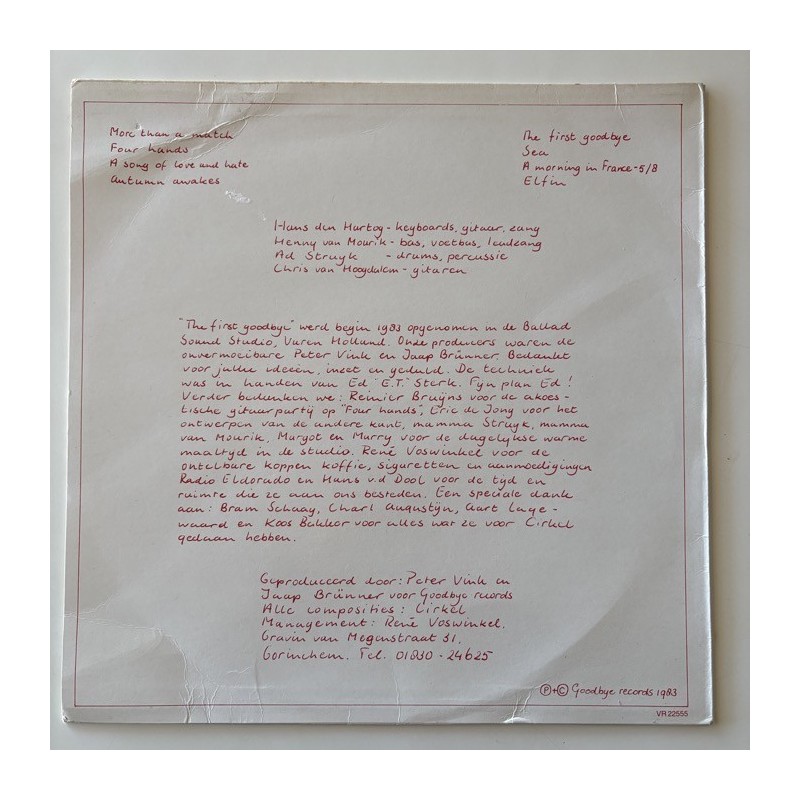 More than a match
Four hands
A song of love and hate
Autumn awakes
The first goodbye
Sea
A morning in France-5/8
Elfin
Hans den Hartog - keyboards, gitaar, zang
Henny van Mourik - bas, voetbas, leadzang
Ad Struyk - drums, percussie
Chris van Hoogdalem - gitaren
"The first goodbye" werd begin 1983 opgenomen in de Ballad
Sound Studio, Vuren Holland. Onze producers waren de
onvermoeibare Peter Vink en Jaap Brünner. Bedankt
voor jullie ideeën, inzet en geduld. De techniek
was in handen van Ed "E.T." Sterk. Fyn plan Ed!
Verder bedanken we: Reinier Bruijns voor de akoes-
tische gitaarpartij op "Four hands", Eric de Jong voor het
ontwerpen van de andere kant, mamma Struyk, mamma
van Mourik, Margot en Marry voor de dagelykse warme
maaltyd in de studio. René Voswinkel voor de
ontelbare koppen koffie, siguretten en aanmoedigingen
Radio Eldorado en Hans v.d Dool voor de tijd en
ruimte die ze aan ons besteden. Een speciale dank
aan: Bram Schaay, Charl Augustijn, Aart Lage-
waard en Koos Bakker voor alles wat ze voor Cirkel
gedaan hebben.
Geproduceerd door: Peter Vink en
Jaap Brünner voor Goodbye records
Alle composities: Cirkel
Management: René Voswinkel.
Gravin van Megenstraat 31.
Gorinchem. Tel. 01830 - 24625
Ⓟ+© Goodbye records 1983
VR 22555